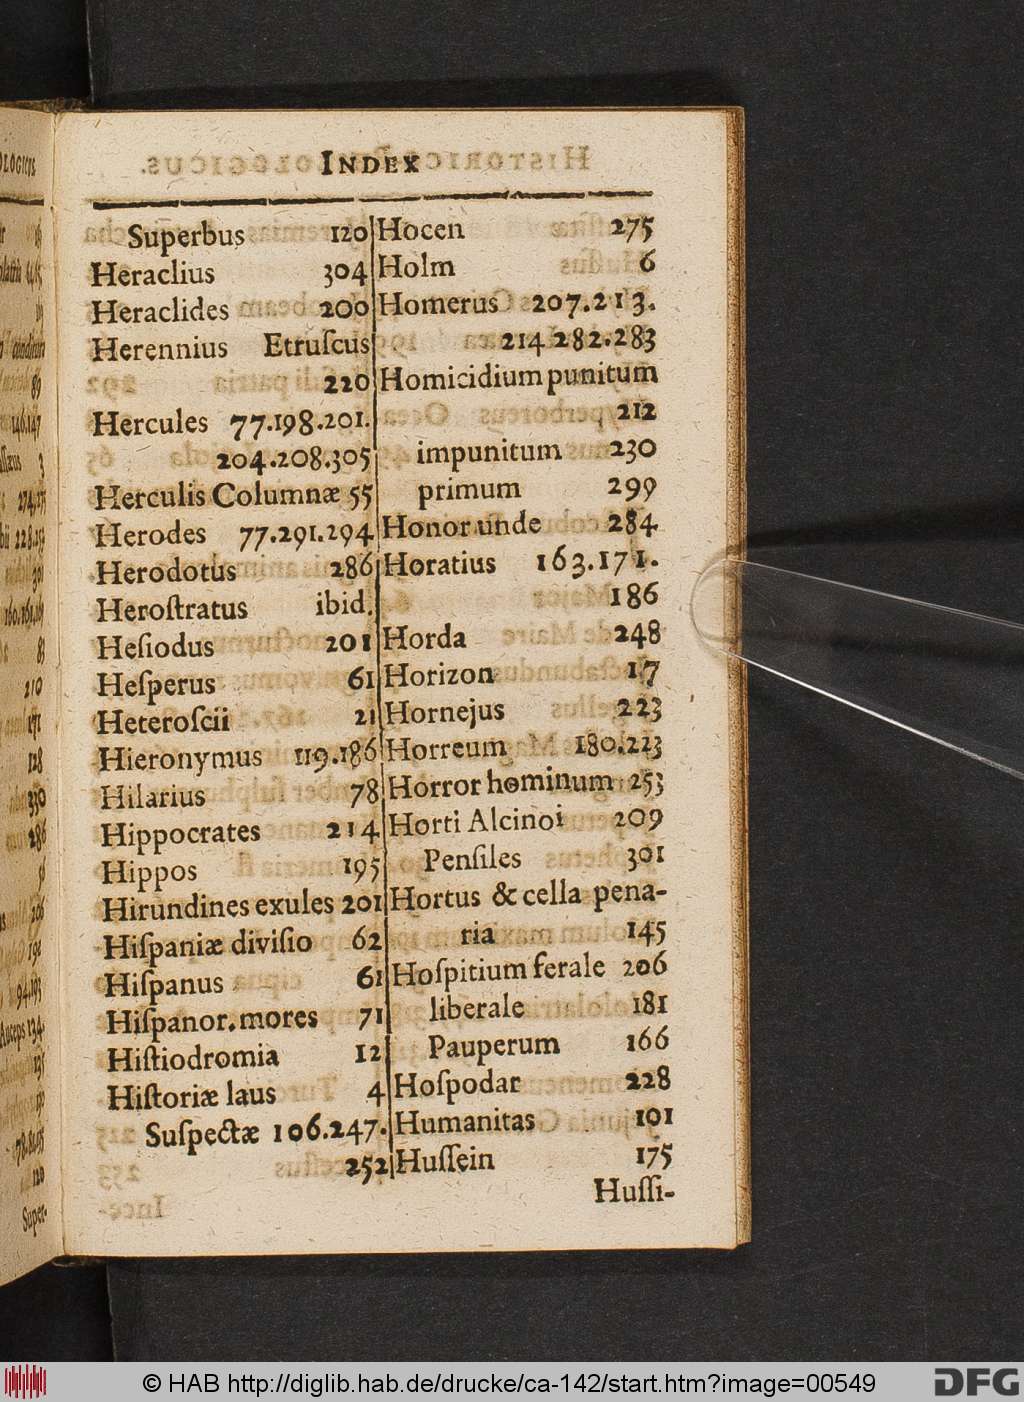 INDEX
Superbus 120
Heraclius 304
Heraclides 200
Herennius Etruſcus
220
Hercules 77.198.201.
204.208.305
Herculis Columnæ 55
Herodes 77.291.294
Herodotus 286
Heroſtratus ibid.
Heſiodus 201
Heſperus 61
Heteroſcii 21
Hieronymus 119.186
Hilarius 78
Hippocrates 214
Hippos 195
Hirundines exules 201
Hiſpaniæ diviſio 62
Hiſpanus 61
Hiſpanor.mores 71
Hiſtiodromia 12
Hiſtoriæ laus 4
Suſpectæ 106.247.
252
Hocen 275
Holm 6
Homerus 207.213.
214 282.283
Homicidium punitum
212
impunitum 230
primum 299
Honor unde 284
Horatius 163.171.
186
Horda 248
Horizon 17
Hornejus 223
Horreum 180.223
Horror hominum 253
Horti Alcinoi 209
Penſiles 301
Hortus & cella pena-
ria 145
Hoſpitium ferale 206
liberale 181
Pauperum 166
Hoſpodar 228
Humanitas 101
Huſſein 175
Huſſi-
© HAB http://diglib.hab.de/drucke/ca-142/start.htm?image=00549
DFG